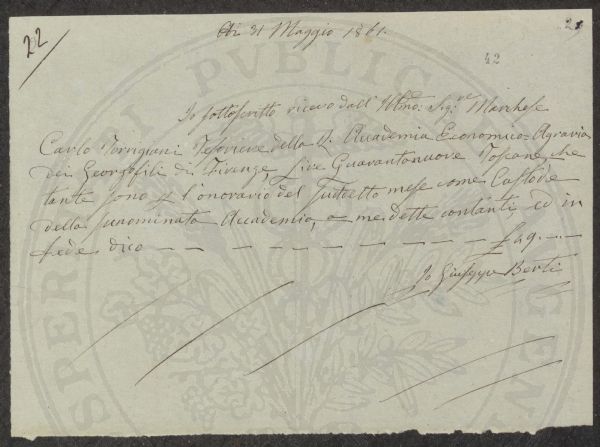 22
Di 31 Maggio 1861.
21
42
Io sottoscritto ricevo dall' Illmo: Sig:re Marchese
Carlo Torrigiani Tesoriere della I. Accademia Economico-Agraria
dei Georgofili di Firenze, Lire Quarantanove Toscane, che
tante sono p l'onorario del suddetto mese come Custode
della sunominata Accademia, a me dette contanti, ed in
fede dico — — — — — — — — — — £ 49. —
Io Giuseppe Berti